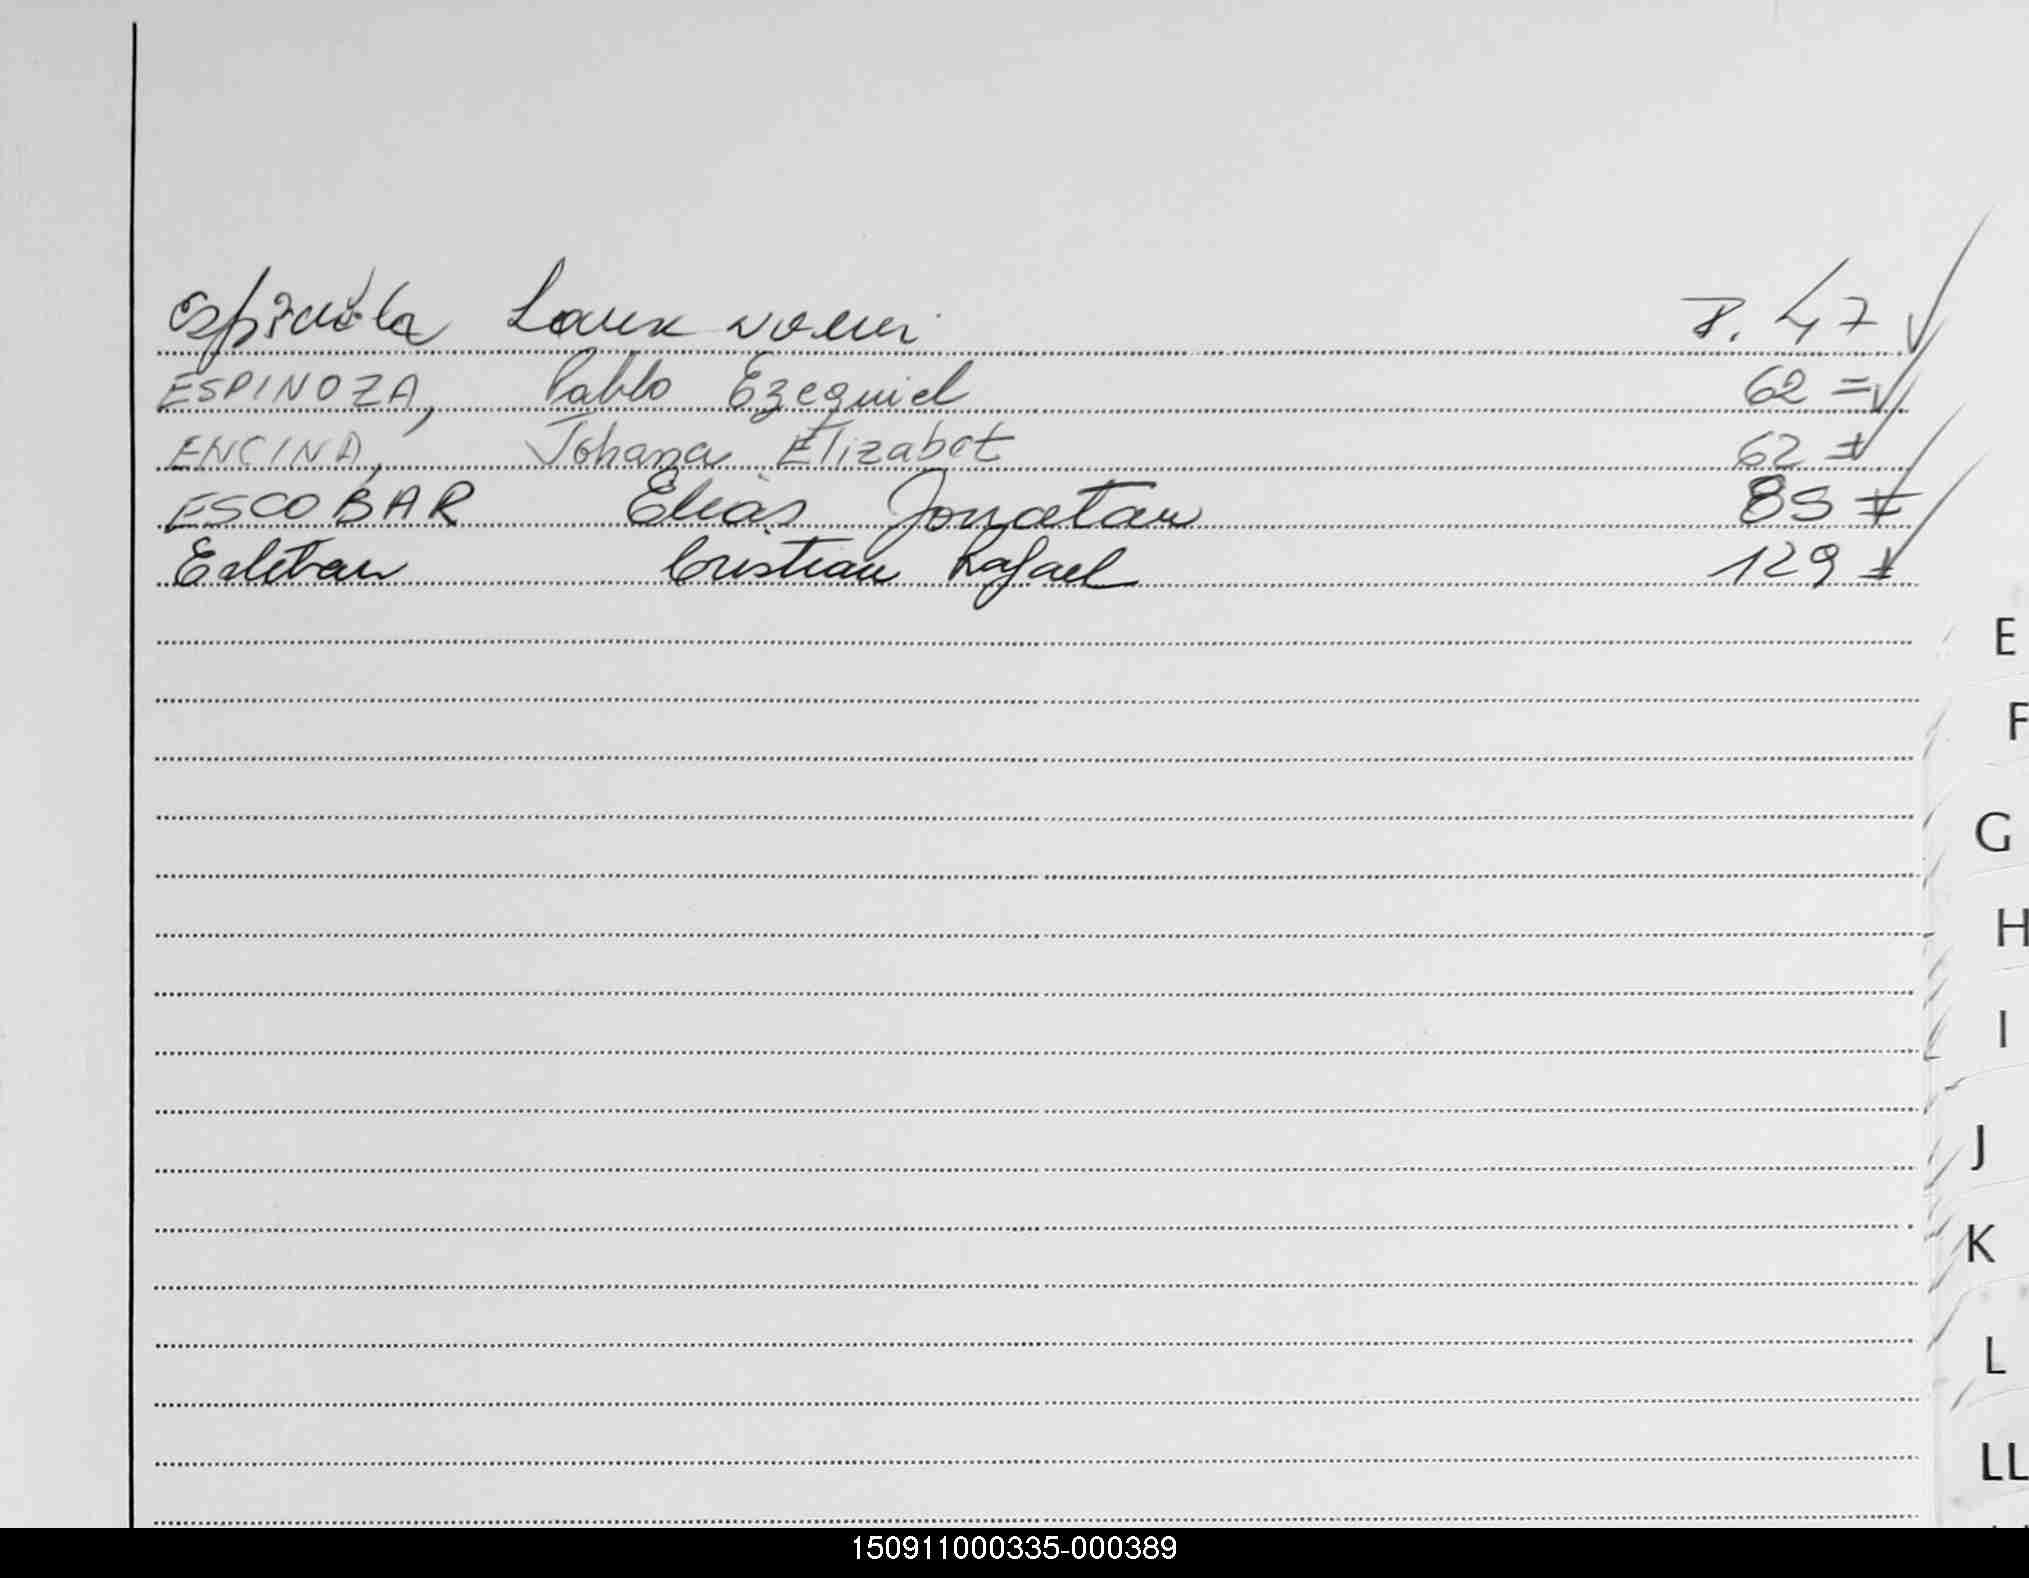 Espindola Laura Noemi P. 47
ESPINOZA, Pablo Ezequiel 62 =
ENCINA, Johana Elizabet 62 =
ESCOBAR Elias Jonatan 85 =
Esteban Cristian Rafael 129 =
E
F
G
H
I
J
K
L
LL
150911000335-000389